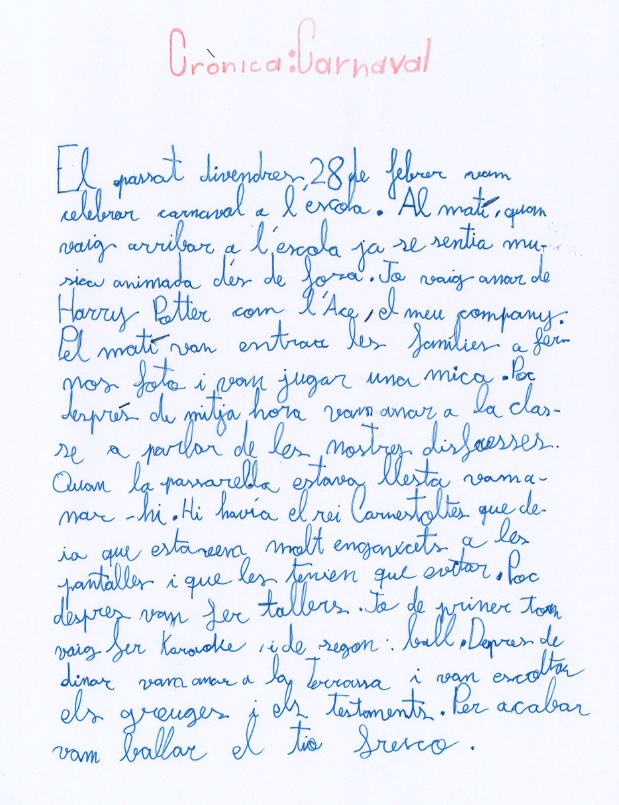 Crònica: Carnaval
El passat divendres, 28 de febrer vam
celebrar carnaval a l'escola. Al matí, quan
vaig arribar a l'escola ja se sentia mú-
sica animada dés de fora. Jo vaig anar de
Harry Potter com l'Ace, el meu company.
Pel matí van entrar les famílies a fer-
nos foto i vam jugar una mica. Poc
desprès de mitja hora vam anar a la clas-
se a parlar de les nostres disfresses.
Quan la passarel·la estava llesta vam a-
nar-hi. Hi havía el rei Carnestoltes que de-
ia que estavem molt enganxats a les
pantalles i que les teniem que evitar. Poc
despres vam fer tallers. Jo de primer torn
vaig fer Karaoke, i de segon: ball. Depres de
dinar vam anar a la terrassa i vam escoltar
els greuges i els testaments. Per acabar
vam ballar el tio fresco.